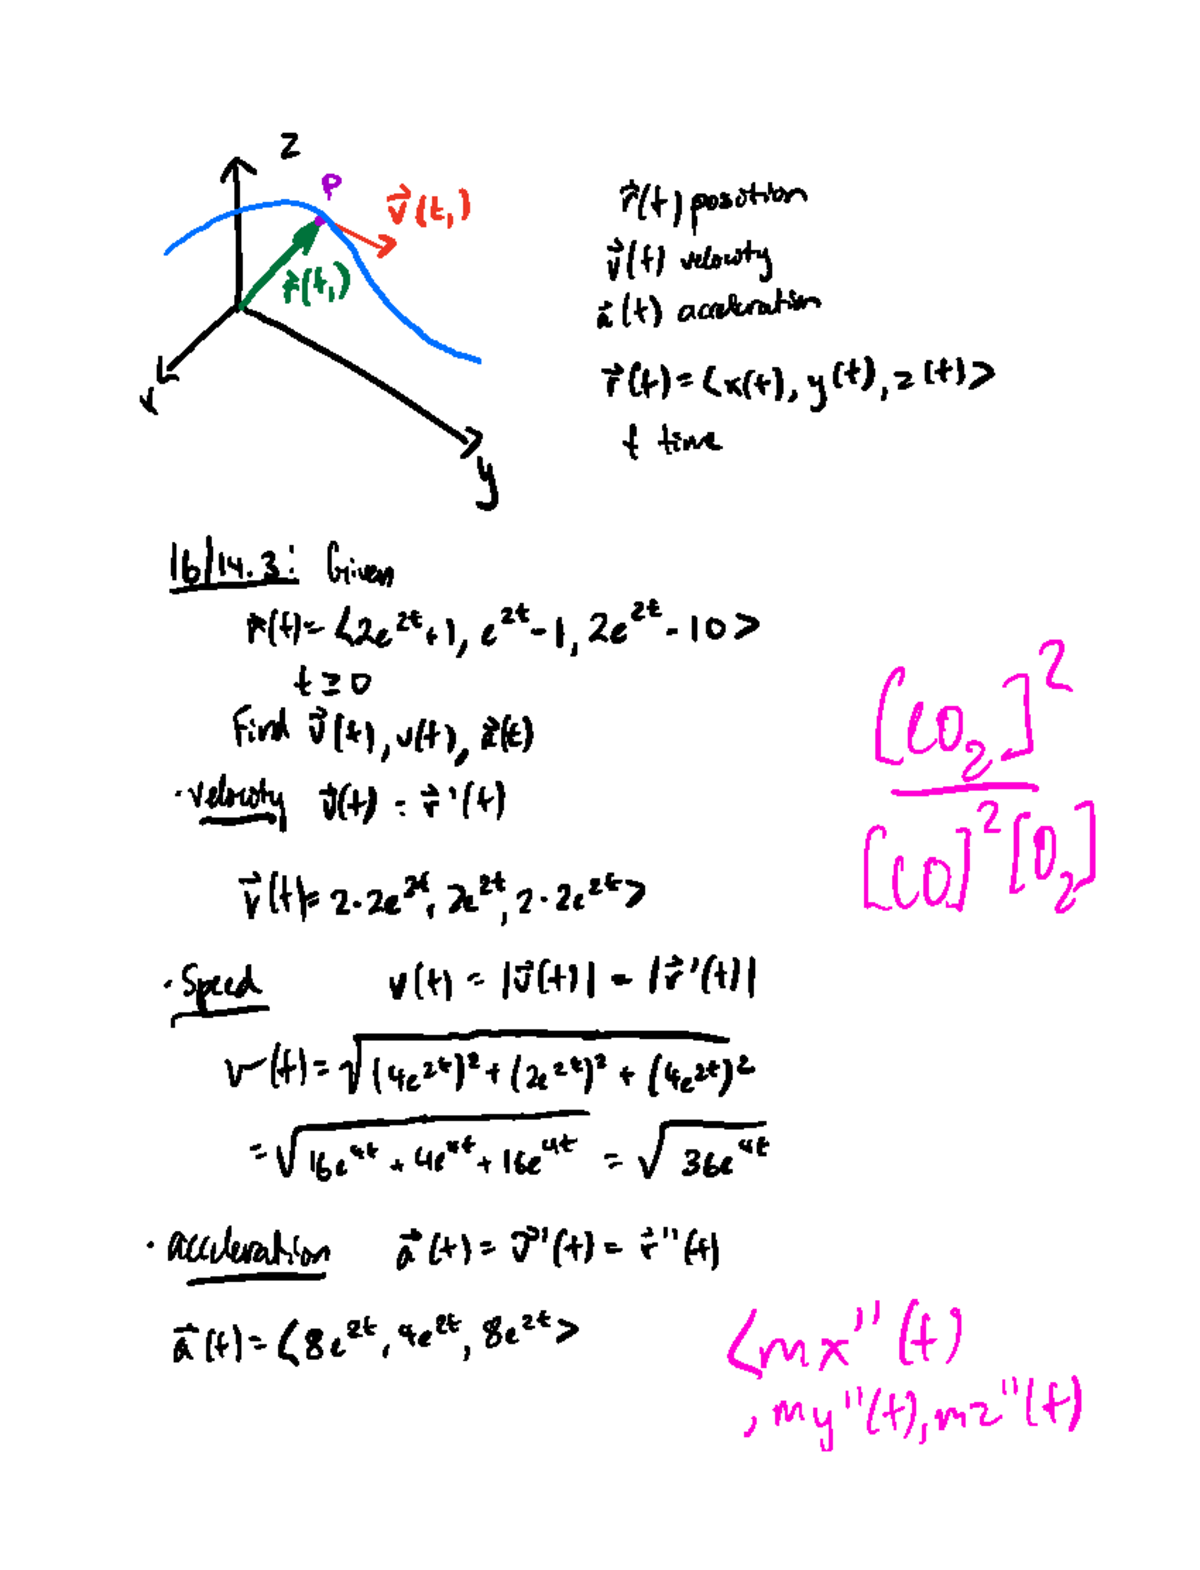 z
P
v⃗(t₁)
r⃗(t₁)
y
r⃗(t) position
v⃗(t) velocity
a⃗(t) acceleration
r⃗(t) = <x(t), y(t), z(t)>
t time
16/14.3: Given
r⃗(t) = <2e^2t+1, e^2t-1, 2e^2t-10>
t ≥ 0
Find v⃗(t), v(t), a⃗(t)
[CO₂]²
[CO]²[O₂]
· velocity v⃗(t) = r⃗'(t)
v⃗(t) = 2·2e^2t, 2e^2t, 2·2e^2t>
· Speed v(t) = |v⃗(t)| = |r⃗'(t)|
v(t) = √(4e^2t)² + (2e^2t)² + (4e^2t)²
= √16e^4t + 4e^4t + 16e^4t = √36e^4t
· acceleration a⃗(t) = v⃗'(t) = r⃗''(t)
a⃗(t) = <8e^2t, 4e^2t, 8e^2t>
<mx''(t)
, my''(t), mz''(t)